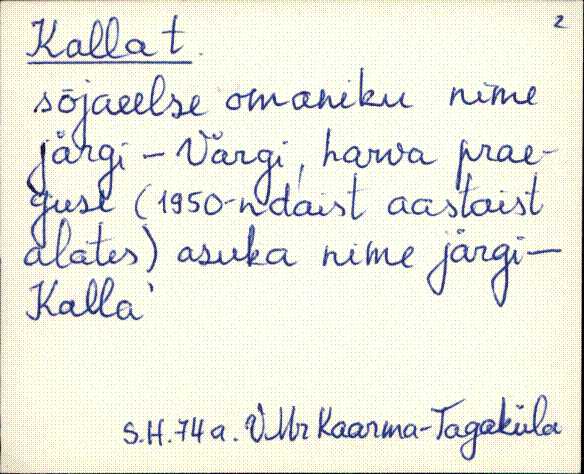 2
Kalla t.
sõjaeelse omaniku nime
järgi – Värgi, harva prae-
guse (1950-ndaist aastaist
alates) asuka nime järgi –
Kalla'
S.H. 74 a. VMr Kaarma-Tagaküla